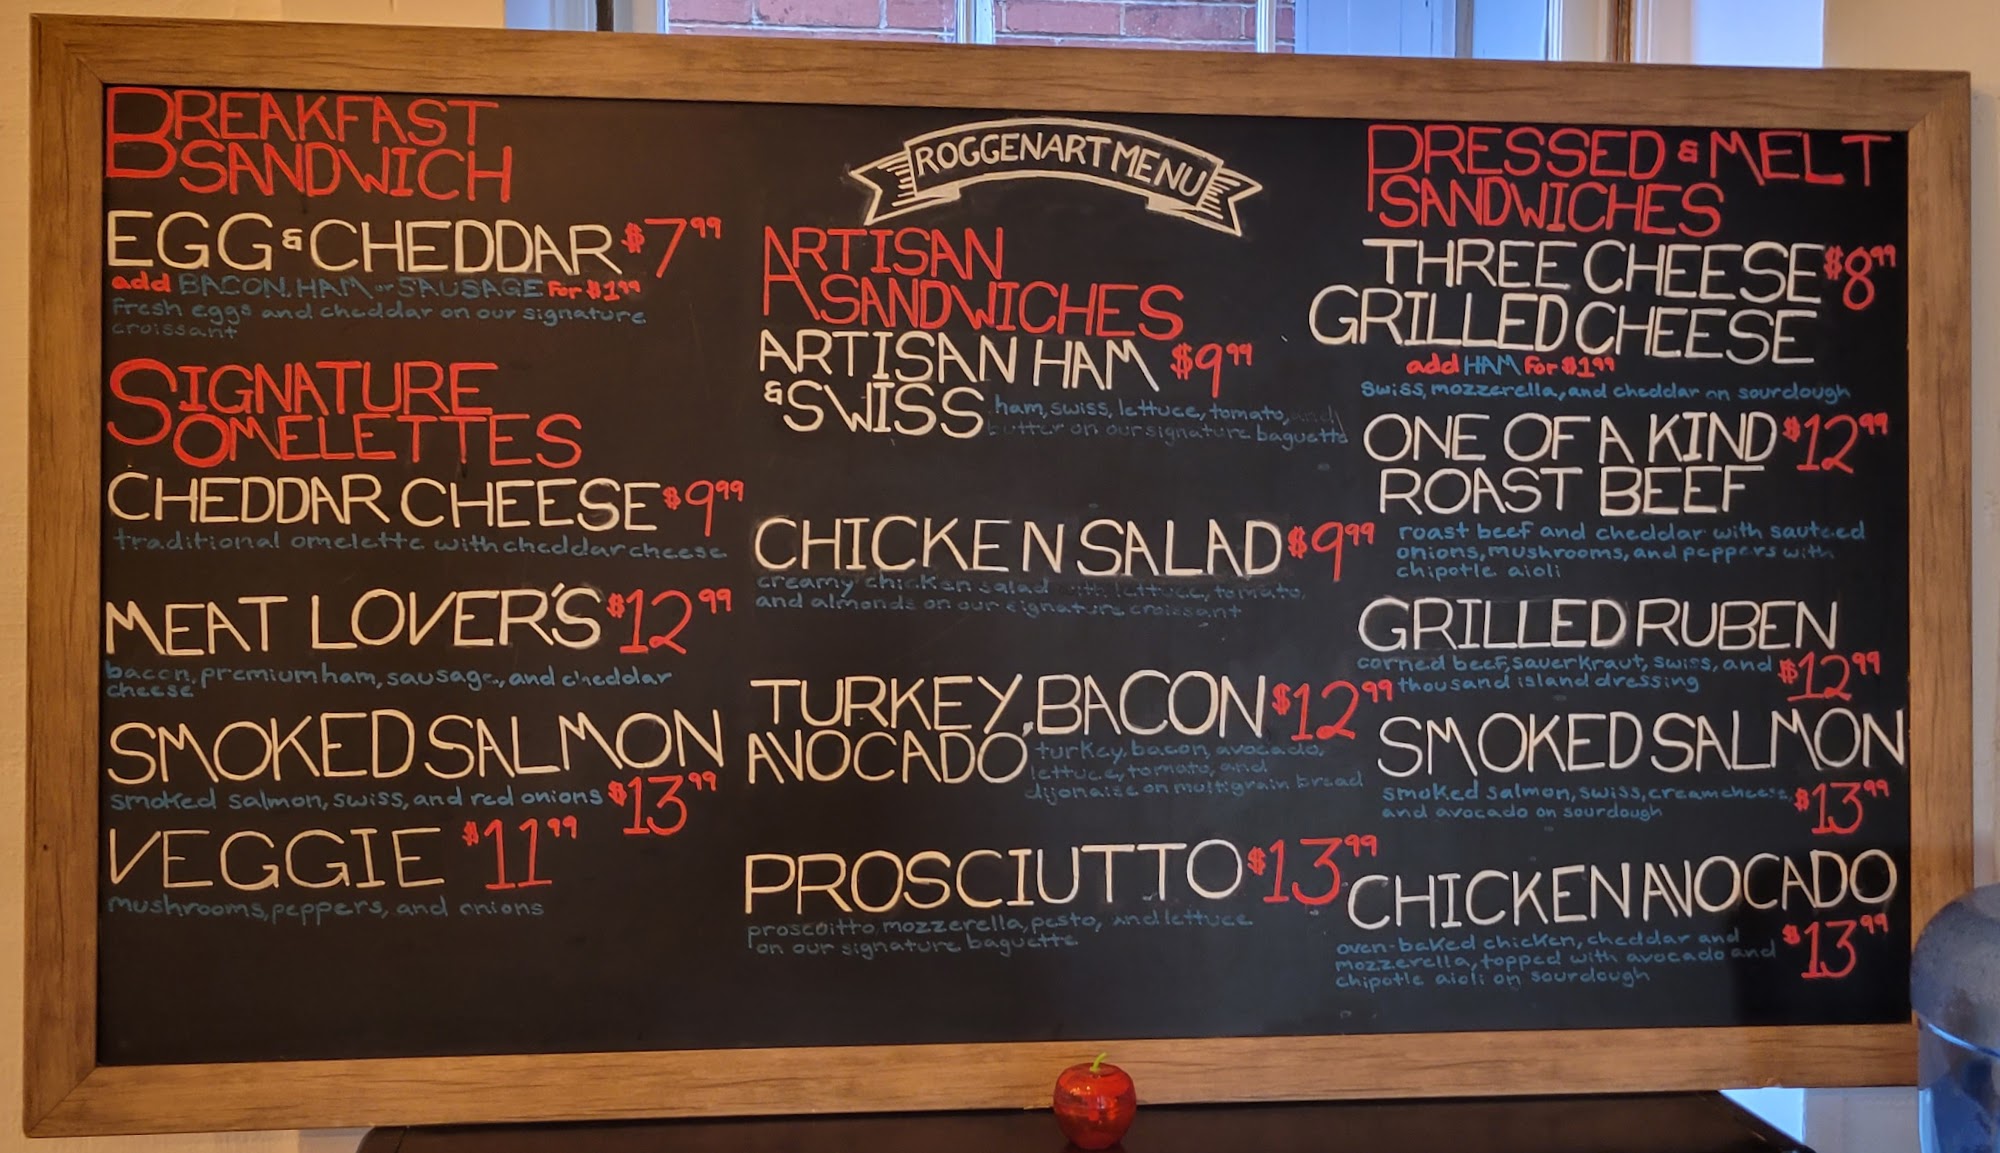 BREAKFAST
SANDWICH
EGG & CHEDDAR $7.99
add BACON, HAM or SAUSAGE For $1.99
Fresh eggs and cheddar on our signature
croissant
SIGNATURE
OMELETTES
CHEDDAR CHEESE $9.99
traditional omelette with cheddar cheese
MEAT LOVER'S $12.99
bacon, premium ham, sausage, and cheddar
cheese
SMOKED SALMON
smoked salmon, swiss, and red onions $13.99
VEGGIE $11.99
mushrooms, peppers, and onions
ROGGENART MENU
ARTISAN
SANDWICHES
ARTISAN HAM $9.99
& SWISS
ham, swiss, lettuce, tomato, and
butter on our signature baguette
CHICKEN SALAD $9.99
creamy chicken salad with lettuce, tomato,
and almonds on our signature croissant
TURKEY, BACON $12.99
AVOCADO
turkey, bacon, avocado,
lettuce, tomato, and
dijonaise on multigrain bread
PROSCIUTTO $13.99
proscoitto, mozzerella, pesto, and lettuce
on our signature baguette
PRESSED & MELT
SANDWICHES
THREE CHEESE $8.99
GRILLED CHEESE
add HAM For $1.99
Swiss, mozzerella, and cheddar on sourdough
ONE OF A KIND $12.99
ROAST BEEF
roast beef and cheddar with sauteed
onions, mushrooms, and peppers with
chipotle aioli
GRILLED RUBEN
corned beef, sauerkraut, swiss, and $12.99
thousand island dressing
SMOKED SALMON
smoked salmon, swiss, cream cheese, $13.99
and avocado on sourdough
CHICKEN AVOCADO
oven-baked chicken, cheddar and $13.99
mozzerella, topped with avocado and
chipotle aioli on sourdough